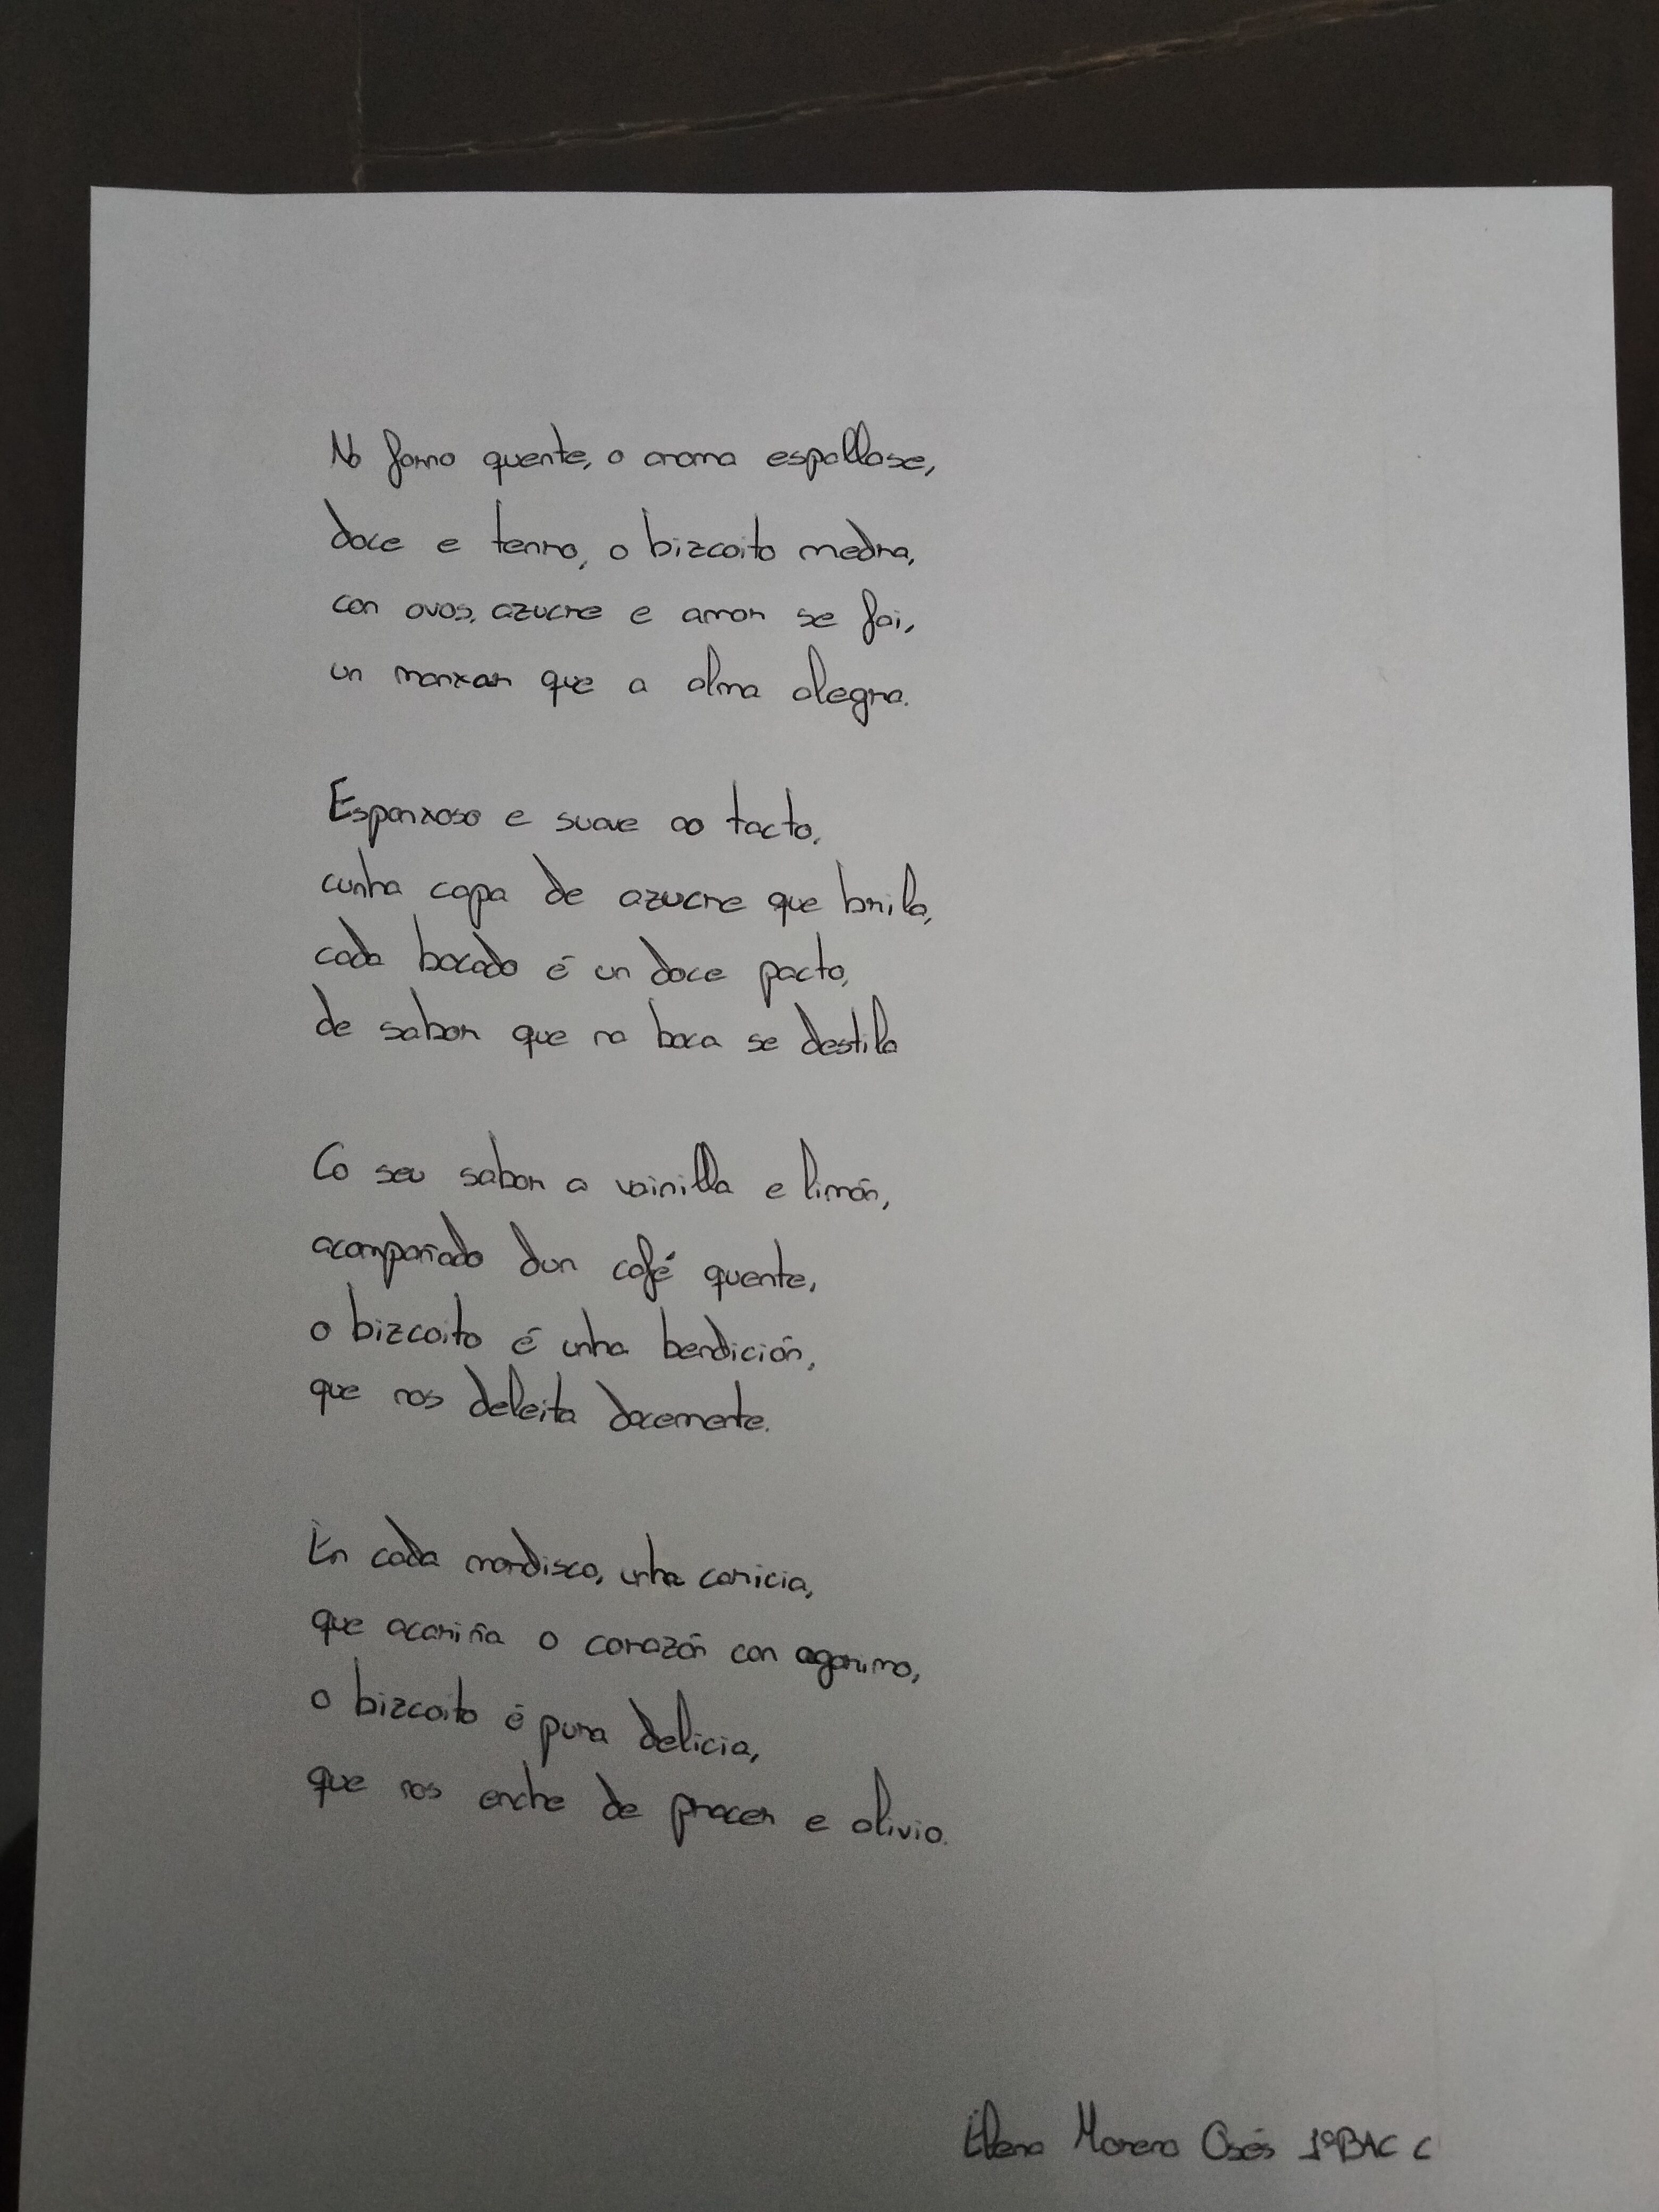 No forno quente, o aroma espállase,
doce e tenro, o bizcoito medra,
con ovos, azucre e amor se fai,
un manxar que a alma alegra.
Esponxoso e suave ao tacto,
cunha capa de azucre que brila,
cada bocado é un doce pacto,
de sabor que na boca se destila
Co seu sabor a vainilla e limón,
acompañado dun café quente,
o bizcoito é unha bendición,
que nos deleita docemente.
En cada mordisco, unha caricia,
que acariña o corazón con agarimo,
o bizcoito é pura delicia,
que nos enche de pracer e alivio.
Elena Moreno Osés 1ºBAC C